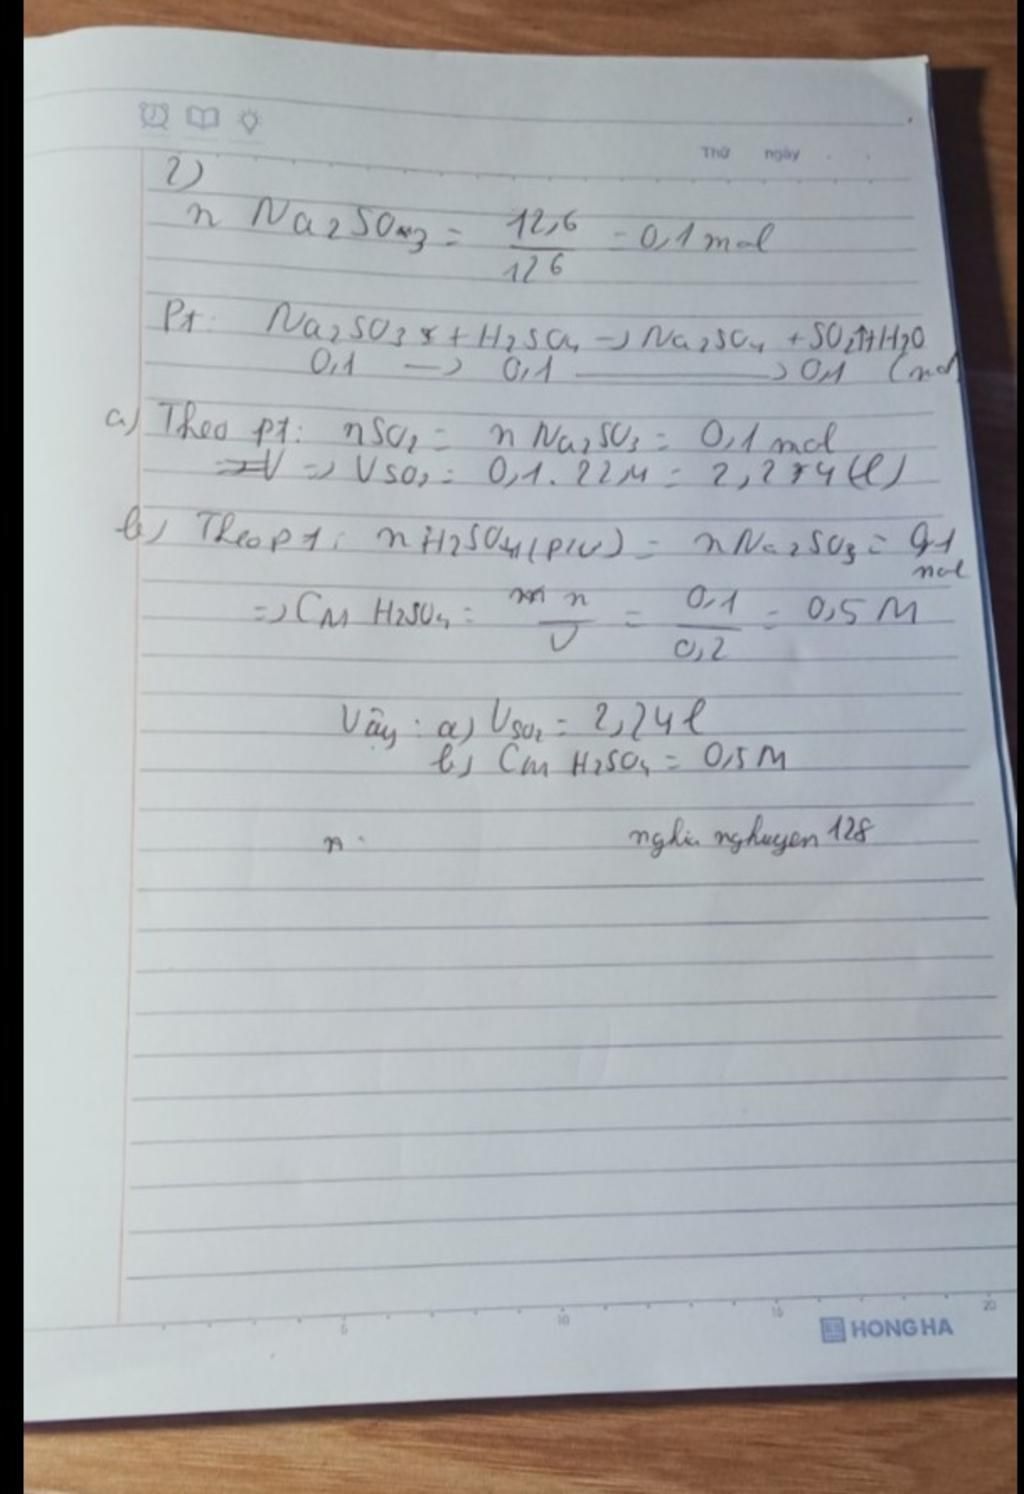 Thứ ngày
2)
n Na2SO3 = 12,6 / 126 = 0,1 mol
Pt: Na2SO3 + H2SO4 → Na2SO4 + SO2↑ + H2O
0,1 → 0,1 → 0,1 (mol
a) Theo pt: nSO2 = n Na2SO3 = 0,1 mol
=> VSO2 = 0,1.22,4 = 2,24 (l)
b) Theo pt: n H2SO4 (pứ) = n Na2SO3 = 0,1 mol
=> CM H2SO4 = n / V = 0,1 / 0,2 = 0,5 M
Vậy: a) VSO2 = 2,24 l
b) CM H2SO4 = 0,5 M
n. nghi nghuyen 128
5 10 15 20
HONG HA